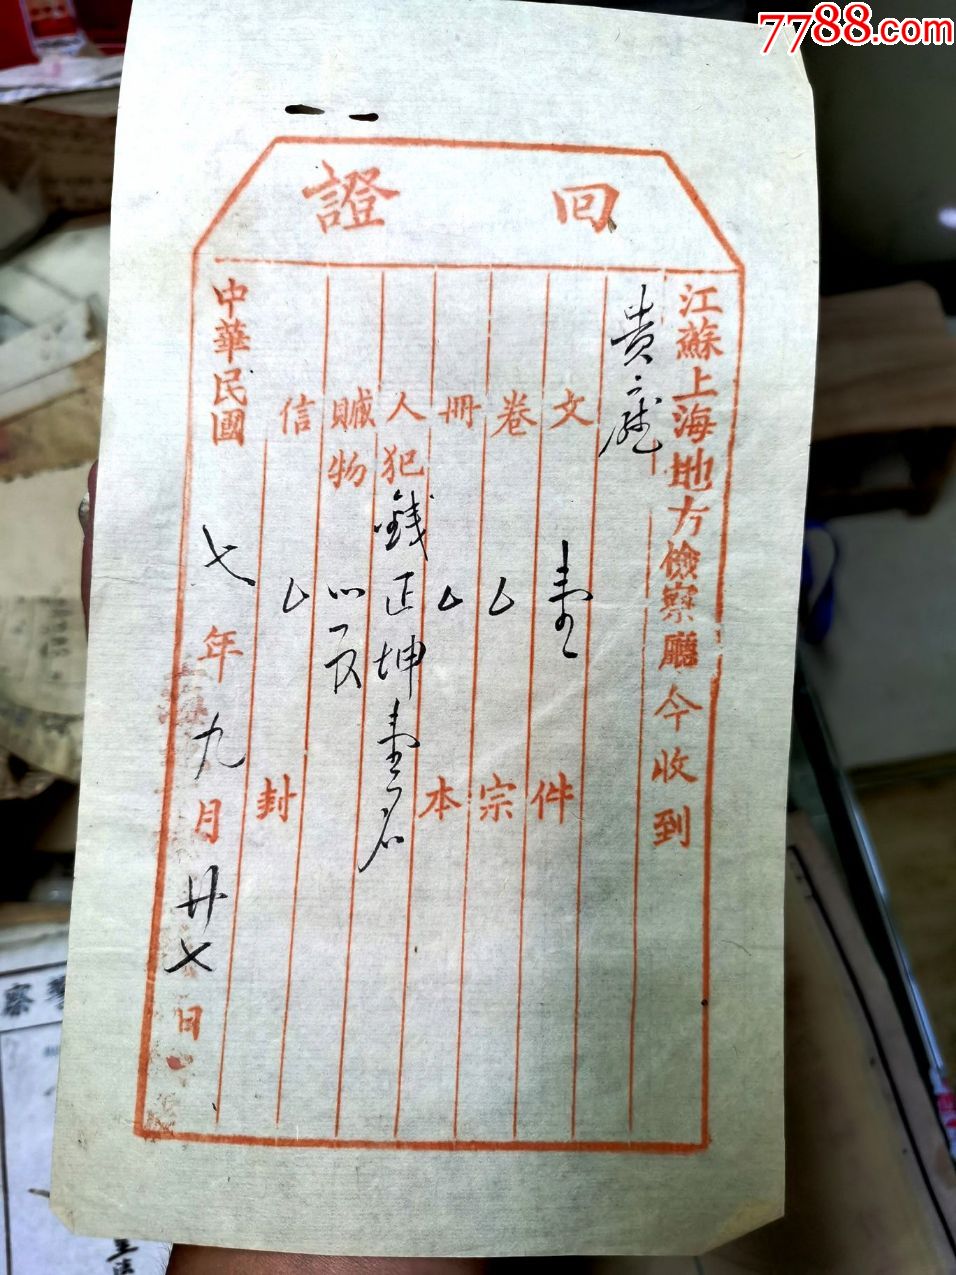 7788.com
回證
江蘇上海地方檢察廳今收到
貴廳
文壹件
卷宗
冊本
人犯錢正坤壹名
贓物
信封
中華民國七年九月廿七日
察